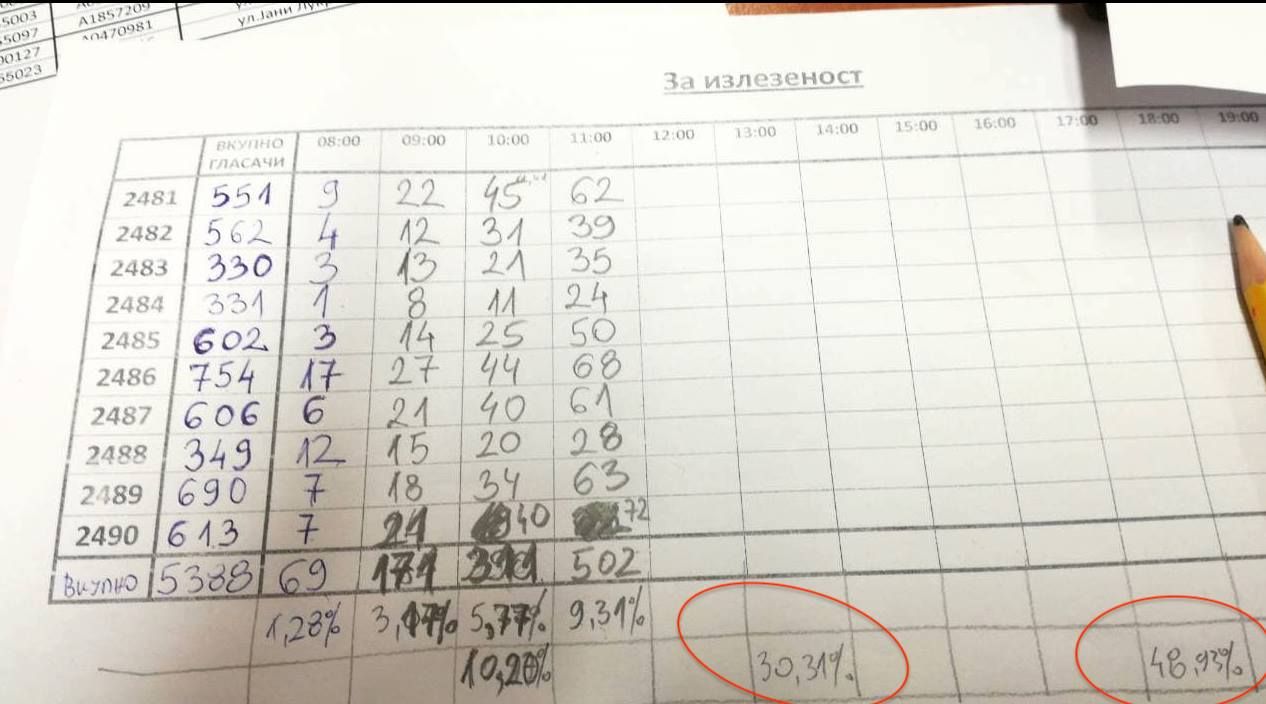 5003 A1857209
5097 A0470981 ул.Јани
00127
55023
За излезеност
ВКУПНО ГЛАСАЧИ 08:00 09:00 10:00 11:00 12:00 13:00 14:00 15:00 16:00 17:00 18:00 19:00
2481 551 9 22 45 62
2482 562 4 12 31 39
2483 330 3 13 21 35
2484 331 1 8 11 24
2485 602 3 14 25 50
2486 754 17 27 44 68
2487 606 6 21 40 61
2488 349 12 15 20 28
2489 690 7 18 34 63
2490 613 7 21 40 72
Вкупно 5388 69 171 311 502
1,28% 3,17% 5,77% 9,31%
10,20% 30,31% 48,93%